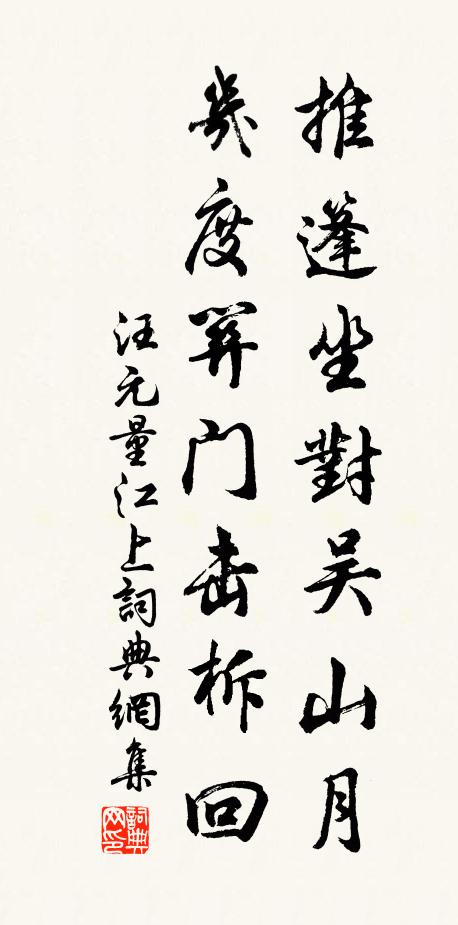 推篷坐對吴山月
幾度開門击柝回
汪元量江上詞典網集
詞典网印